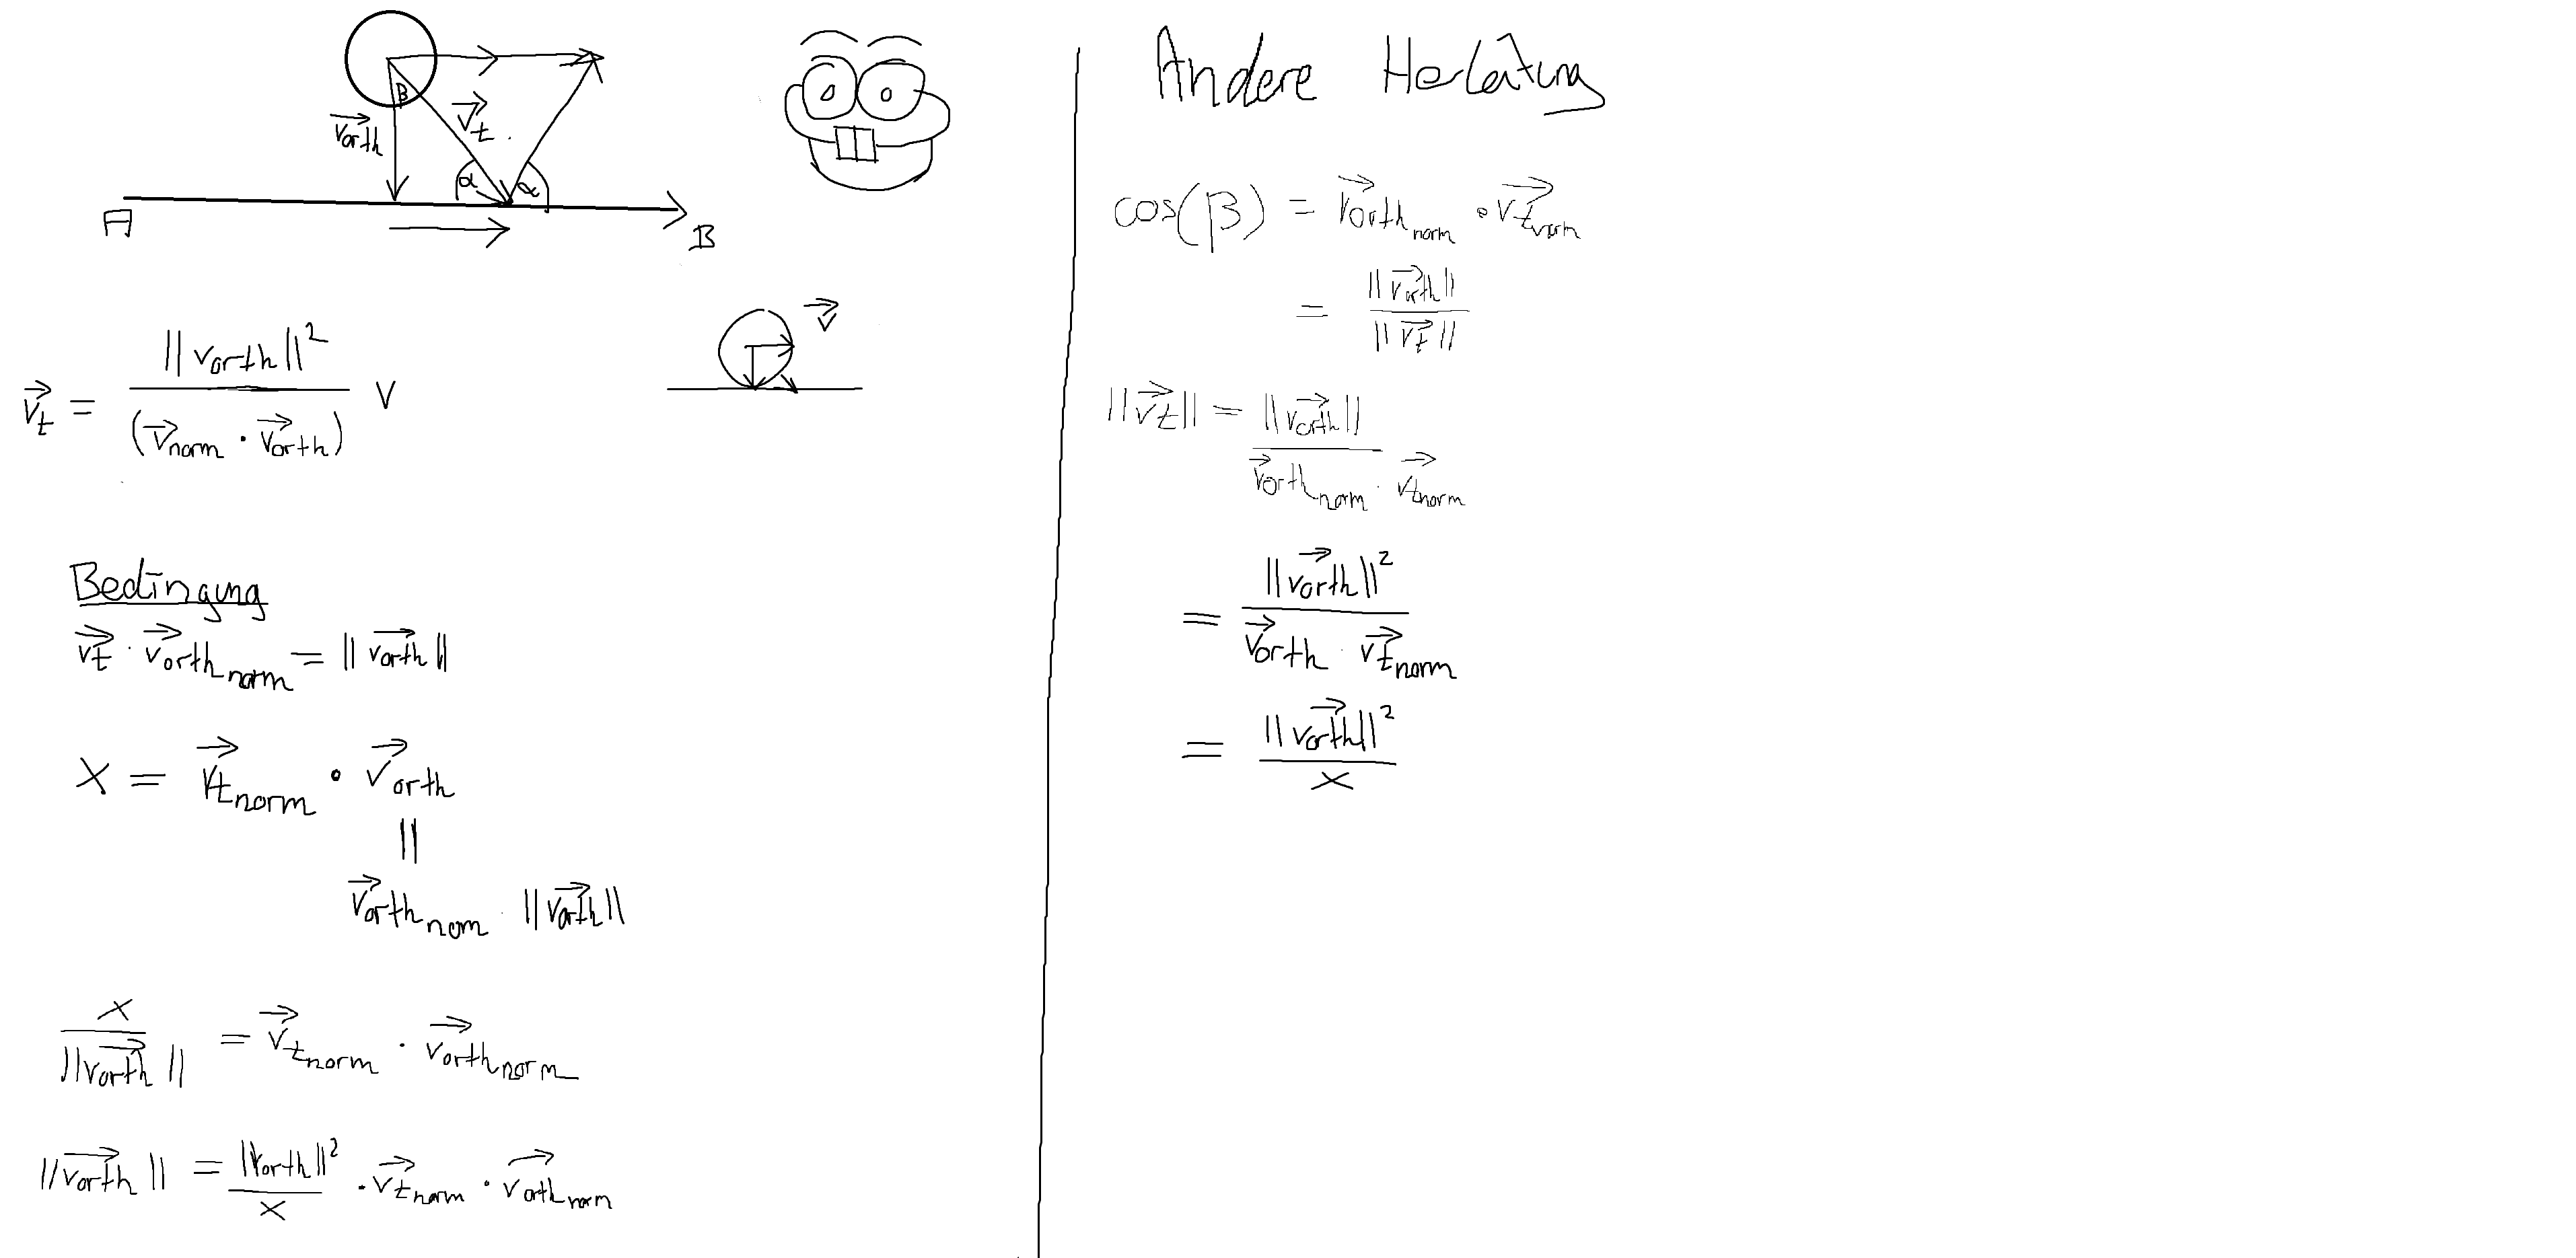 β
v⃗orth
v⃗t
α α
A
B
v⃗
v⃗t = ||vorth||² / (v⃗norm · v⃗orth) v
Bedingung
v⃗t · v⃗orth norm = ||v⃗orth||
x = v⃗t norm · v⃗orth
||
v⃗orth nom · ||v⃗orth||
x / ||v⃗orth|| = v⃗t norm · v⃗orth norm
||v⃗orth|| = ||vorth||² / x · v⃗t norm · v⃗orth norm
Andere Herleitung
cos(β) = v⃗orth norm · v⃗t norm
= ||v⃗orth|| / ||v⃗t||
||v⃗t|| = ||v⃗orth|| / v⃗orth norm · v⃗t norm
= ||v⃗orth||² / v⃗orth · v⃗t norm
= ||v⃗orth||² / x